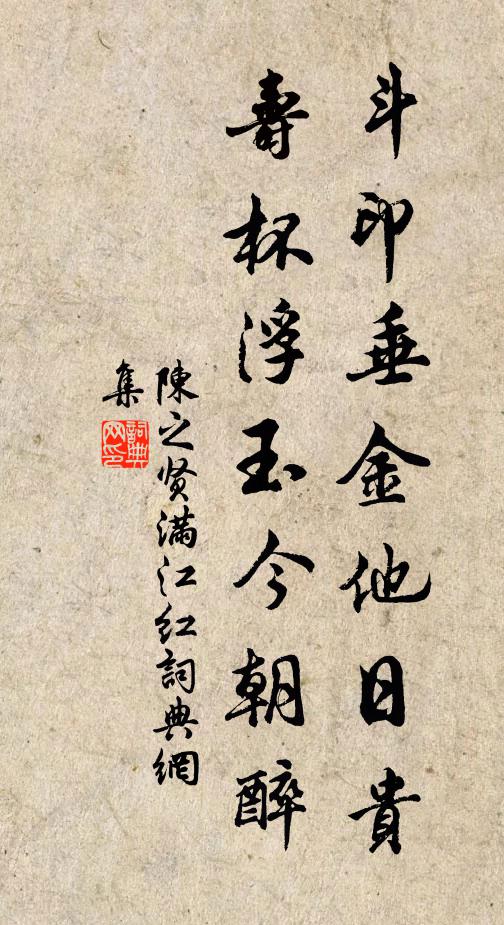 斗印垂金他日貴
壽杯浮玉今朝醉
陳之贤滿江红詞典網
集
詞典
网印